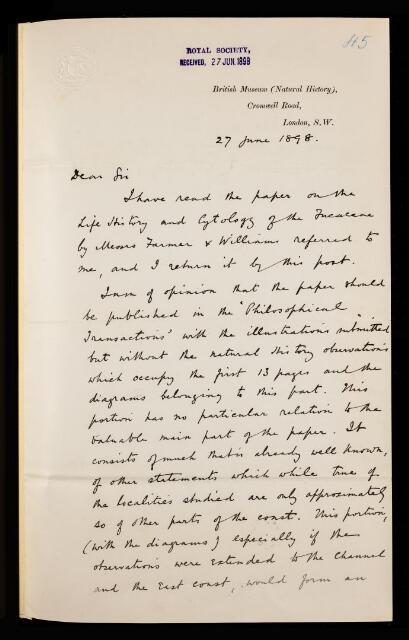 45
ROYAL SOCIETY,
RECEIVED, 27 JUN. 1898
British Museum (Natural History),
Cromwell Road,
London, S.W.
27 June 1898.
Dear Sir
I have read the paper on the
Life History and Cytology of the Fucaceae
by Messrs Farmer & Williams referred to
me, and I return it by this post.
I am of opinion that the paper should
be published in the "Philosophical
Transactions" with the illustrations submitted
but without the natural history observations
which occupy the first 13 pages and the
diagrams belonging to this part. This
portion has no particular relation to the
valuable main part of the paper. It
consists of much that is already well known,
of other statements which while true of
the localities studied are only approximately
so of other parts of the coast. This portion,
(with the diagrams) especially if the
observations were extended to the Channel
and the East coast, would form an